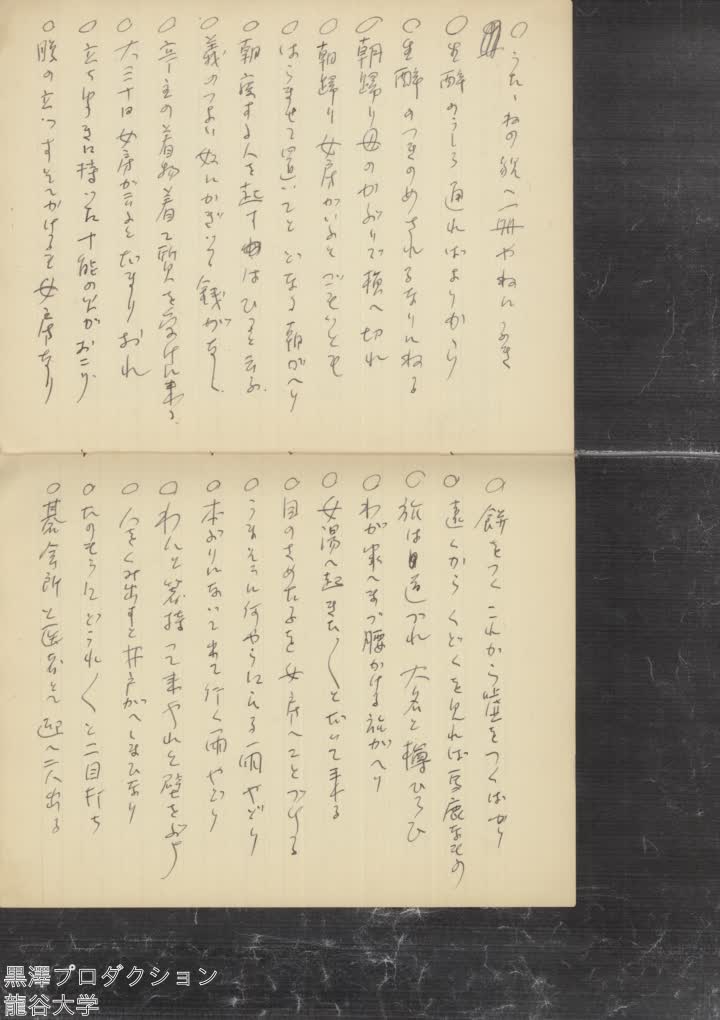 ○うたゝねの㒵へ一冊やねにふき
○生酔のうしろ通ればよりかゝり
○生酔のつきのめされるなりにねる
○朝帰り母のかぶりで横へ切れ
○朝帰り女房がいふとごもつとも
○はらませて置いてとどなる朝がへり
○朝寝する人を起すはひると云ふ
○義のつよい奴にかぎつて銭がなし
○亭主の着物着て質を受けに来る
○大三十日女房が云ふとだまりおれ
○立ちゆきに持つた十能の火がおこり
○腹の立つすそへかけるも女房なり
○餅をつくこれから嘘をつくばかり
○遠くからくどくを見れば馬鹿なもの
○旅は道づれ大名と樽ひろひ
○わが家へまづ腰かける旅がへり
○女湯へ起きた〳〵とだいて来る
○目のさめた子を女房へことづける
○うまさうに何やらにえる雨やどり
○本ぶりになつて出て行く雨やどり
○わんと箸持つて来やれと壁をぶち
○人をくみ出すと井戸がへしまひなり
○たのもうにどうれ〳〵と二目打ち
○碁会所と医者とへ迎へ二人出る
黒澤プロダクション
龍谷大学